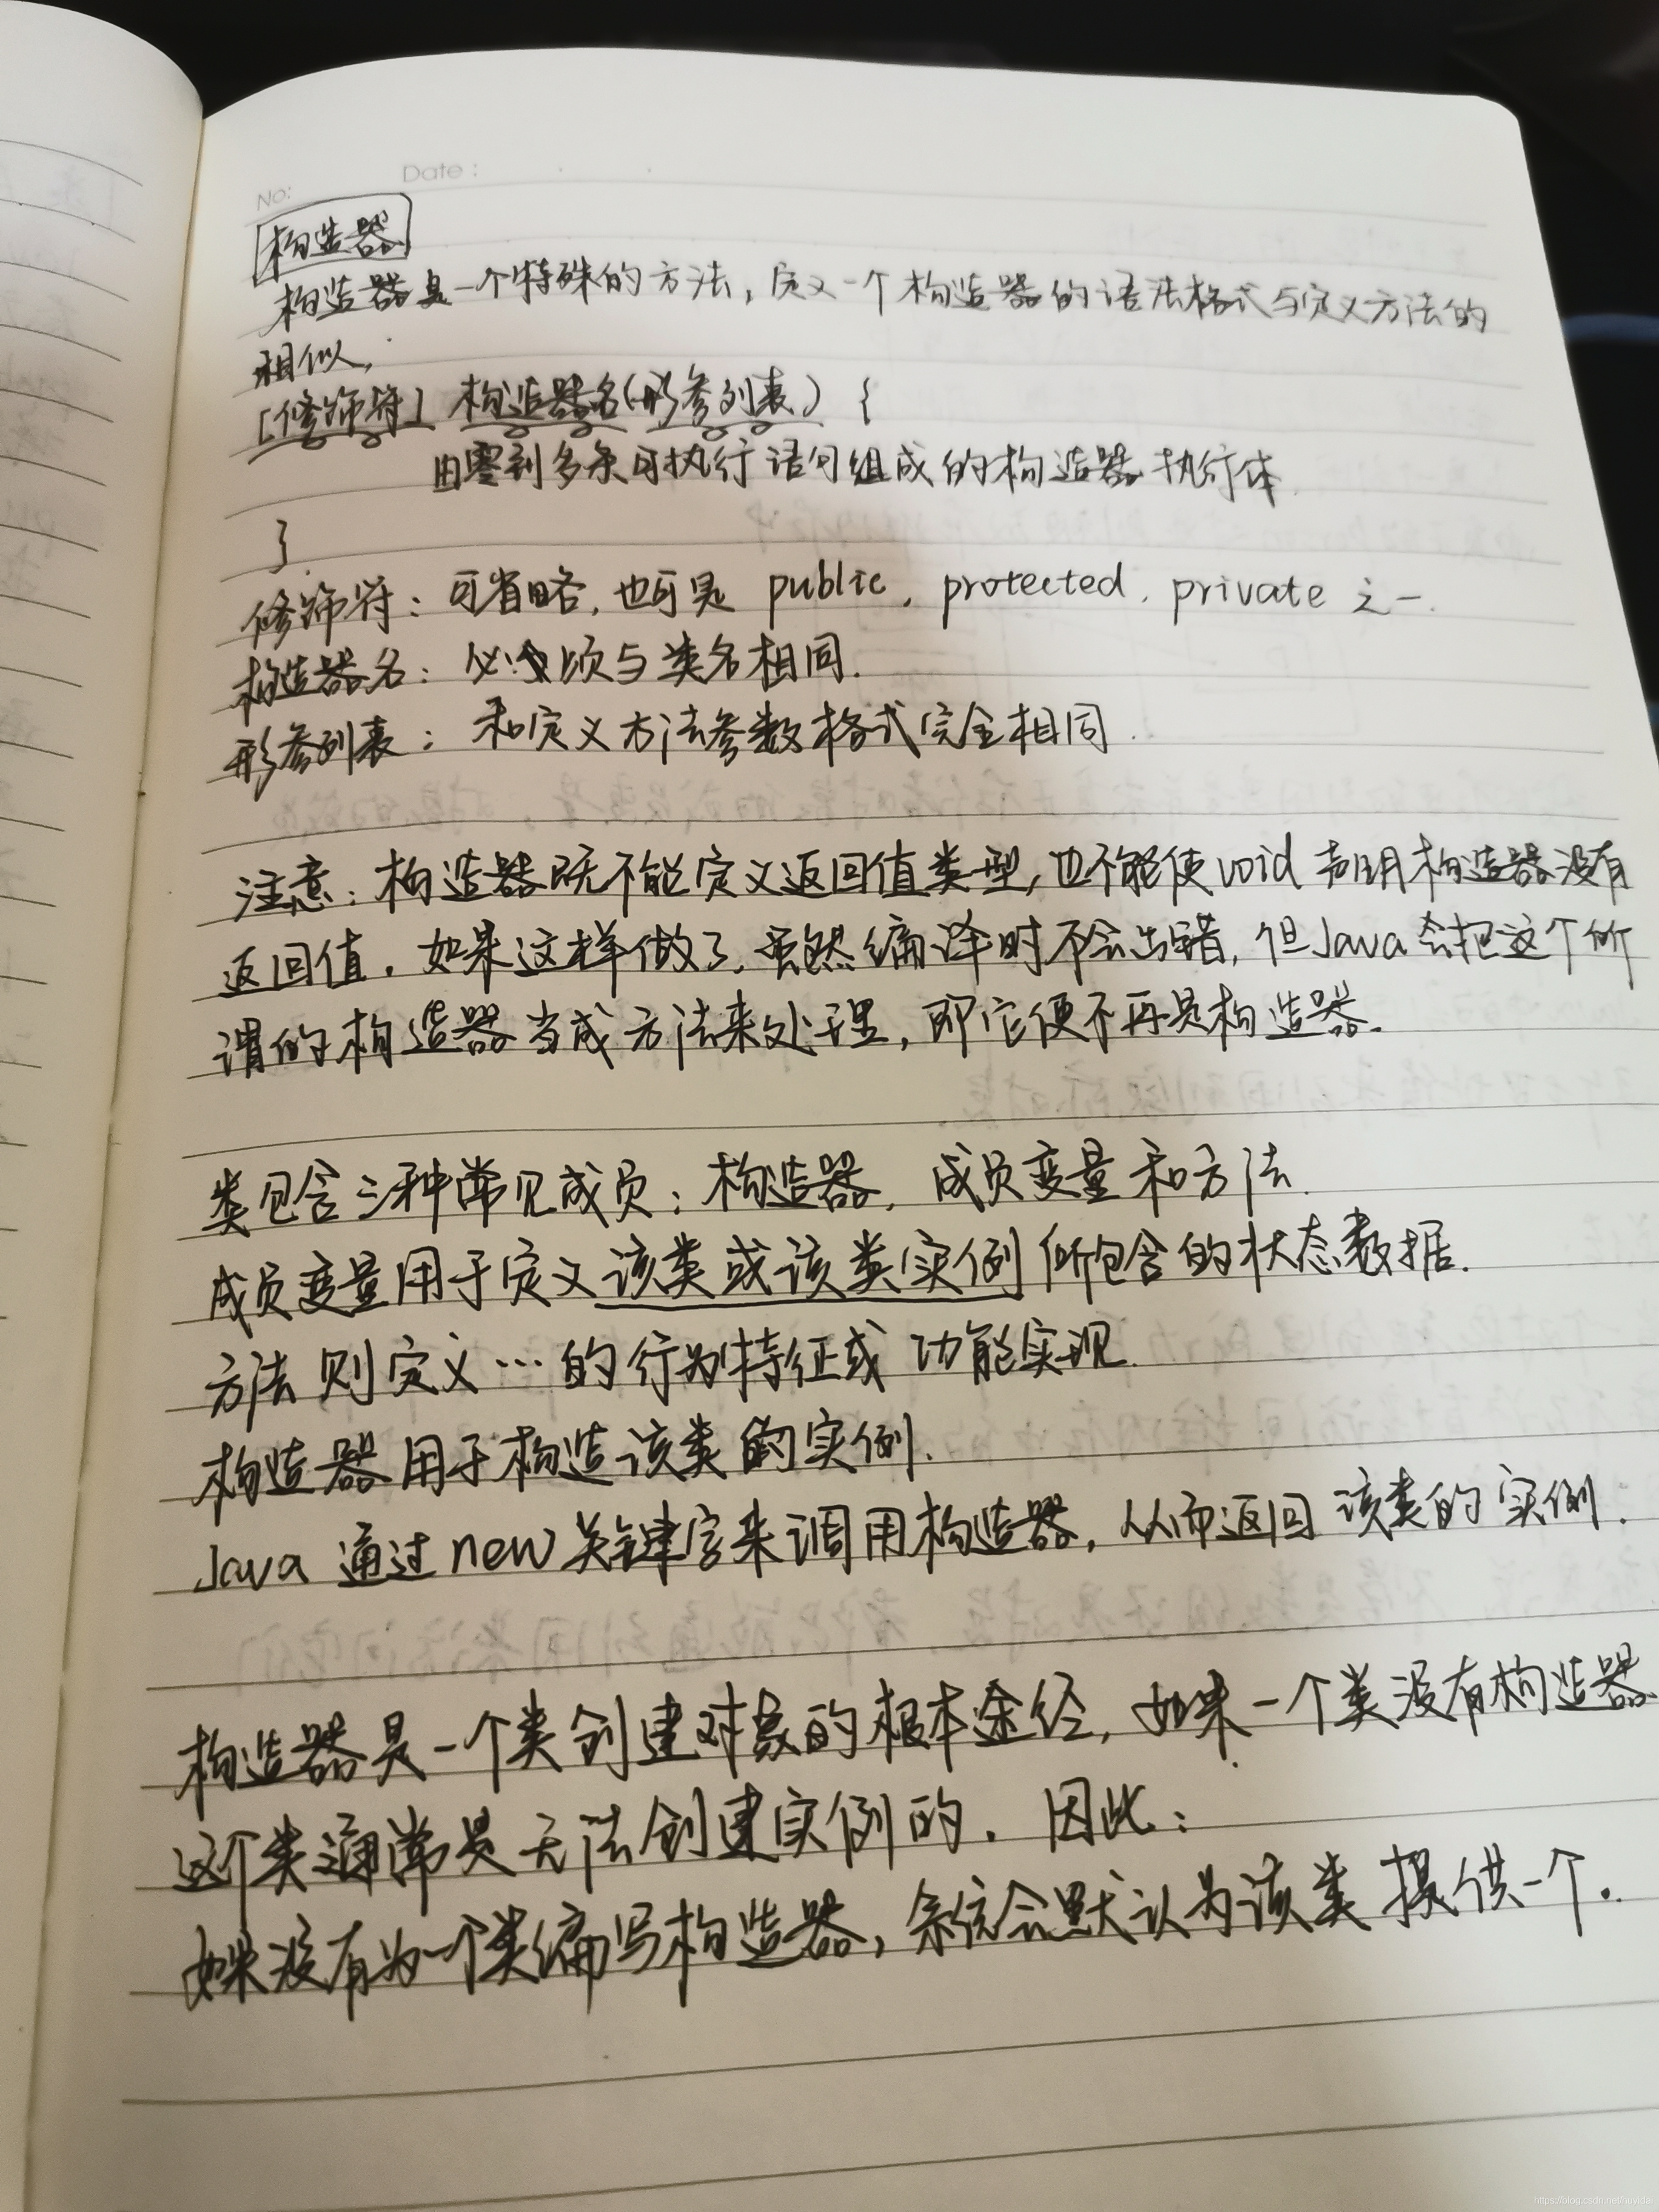 No:
Date :
构造器
构造器是一个特殊的方法，定义一个构造器的语法格式与定义方法的
相似，
[修饰符] 构造器名(形参列表) {
由零到多条可执行语句组成的构造器执行体
}
修饰符：可省略，也可是 public, protected, private 之一.
构造器名：必须与类名相同.
形参列表：和定义方法参数格式完全相同.
注意：构造器既不能定义返回值类型，也不能使void声明构造器没有
返回值. 如果这样做了，虽然编译时不会出错，但Java会把这个所
谓的构造器当成方法来处理，即它便不再是构造器.
类包含三种常见成员：构造器，成员变量和方法.
成员变量用于定义该类或该类实例所包含的状态数据.
方法则定义…的行为特征或功能实现.
构造器用于构造该类的实例.
Java 通过new关键字来调用构造器，从而返回该类的实例.
构造器是一个类创建对象的根本途径，如果一个类没有构造器
这个类通常是无法创建实例的. 因此：
如果没有为一个类编写构造器，系统会默认为该类提供一个.
https://blog.csdn.net/huyidai